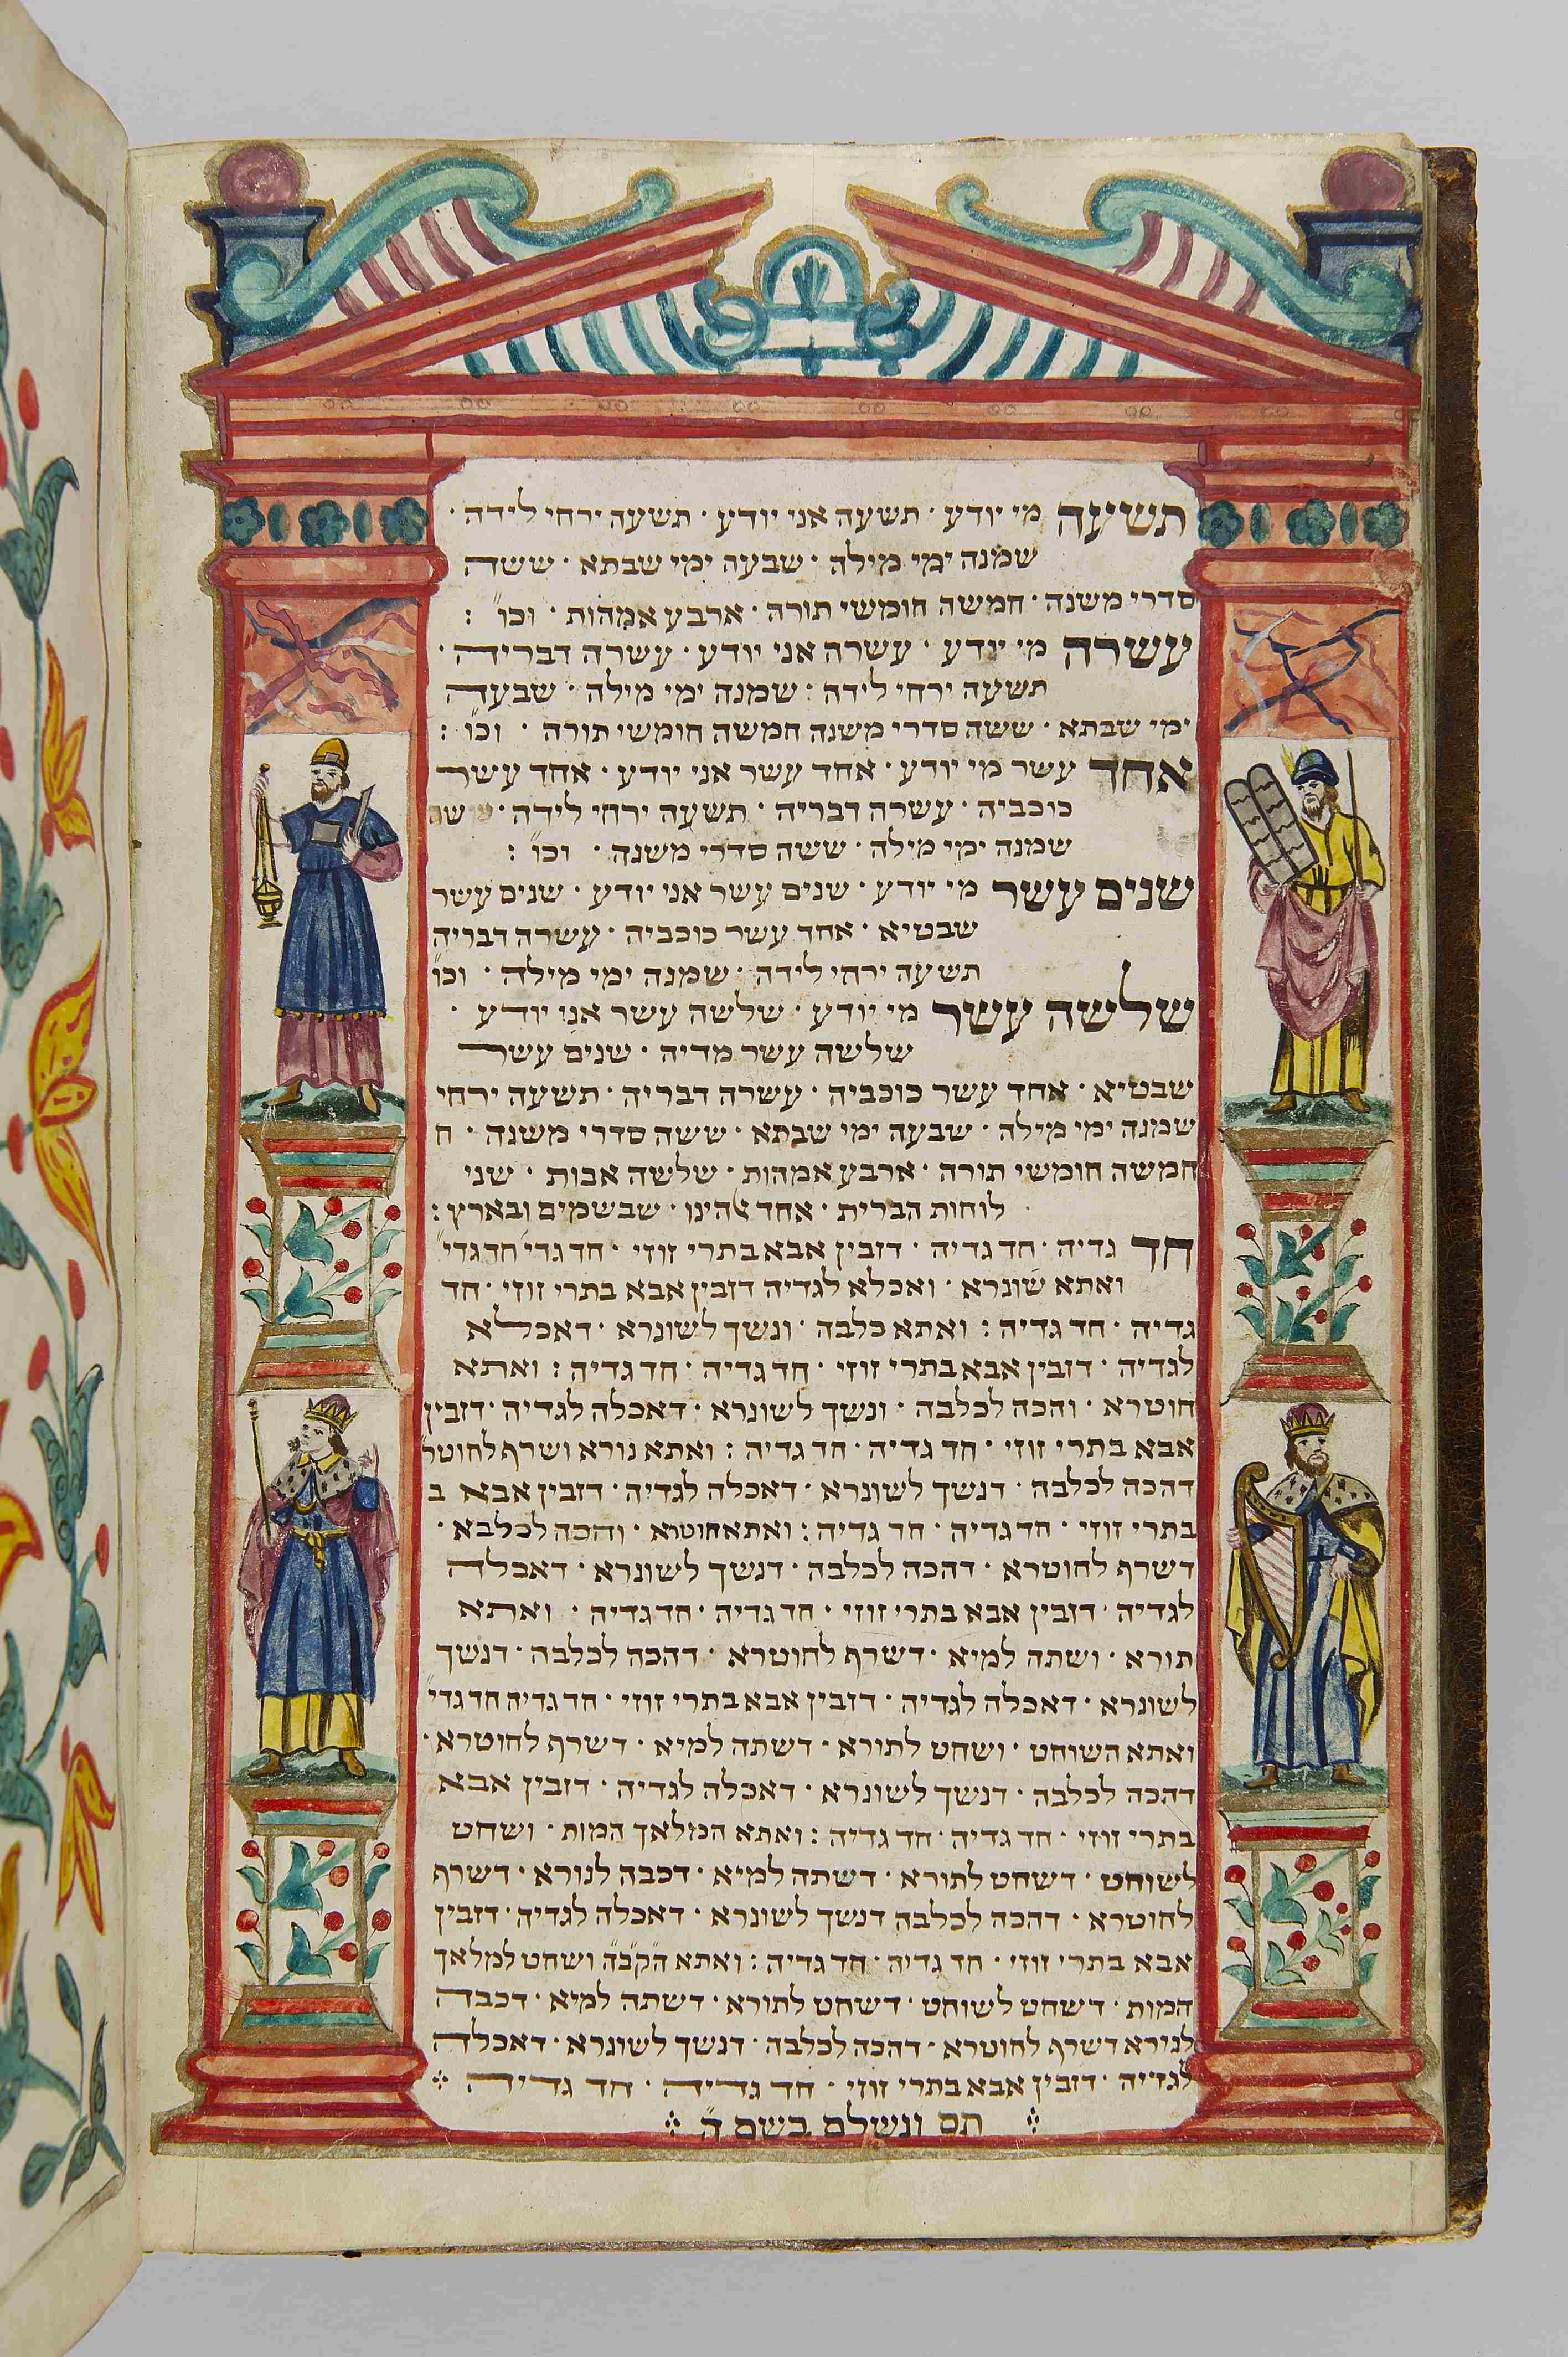 תשעה מי יודע · תשעה אני יודע · תשעה ירחי לידה ·
שמנה ימי מילה · שבעה ימי שבתא · ששה
סדרי משנה · חמשה חומשי תורה · ארבע אמהות · וכו״ :
עשרה מי יודע · עשרה אני יודע · עשרה דבריה ·
תשעה ירחי לידה : שמנה ימי מילה · שבעה
ימי שבתא · ששה סדרי משנה חמשה חומשי תורה · וכו״ :
אחד עשר מי יודע · אחד עשר אני יודע · אחד עשר
כוכביה · עשרה דבריה · תשעה ירחי לידה ·
שמנה ימי מילה · ששה סדרי משנה · וכו״ :
שנים עשר מי יודע · שנים עשר אני יודע · שנים עשר
שבטיא · אחד עשר כוכביה · עשרה דבריה
תשעה ירחי לידה · שמנה ימי מילה · וכו״
שלשה עשר מי יודע · שלשה עשר אני יודע ·
שלשה עשר מדיה · שנים עשר
שבטיא · אחד עשר כוכביה · עשרה דבריה · תשעה ירחי
שמנה ימי מילה · שבעה ימי שבתא · ששה סדרי משנה · ח
חמשה חומשי תורה · ארבע אמהות · שלשה אבות · שני
לוחות הברית · אחד אלהינו · שבשמים ובארץ :
חד גדיה · חד גדיה · דזבין אבא בתרי זוזי · חד גדי׳ חד גדי״
ואתא שונרא · ואכלא לגדיה דזבין אבא בתרי זוזי · חד
גדיה · חד גדיה : ואתא כלבה · ונשך לשונרא · דאכלא
לגדיה · דזבין אבא בתרי זוזי · חד גדיה · חד גדיה : ואתא
חוטרא · והכה לכלבה · ונשך לשונרא · דאכלה לגדיה · דזבין
אבא בתרי זוזי · חד גדיה · חד גדיה : ואתא נורא ושרף לחוטר
דהכה לכלבה · דנשך לשונרא · דאכלה לגדיה · דזבין אבא ב
בתרי זוזי · חד גדיה · חד גדיה : ואתא חוטרא · והכה לכלבא ·
דשרף לחוטרא · דהכה לכלבה · דנשך לשונרא · דאכלה
לגדיה · דזבין אבא בתרי זוזי · חד גדיה · חד גדיה · ואתא
תורא · ושתה למיא · דשרף לחוטרא · דהכה לכלבה · דנשך
לשונרא · דאכלה לגדיה · דזבין אבא בתרי זוזי · חד גדיה חד גדי״
ואתא השוחט · ושחט לתורא · דשתה למיא · דשרף לחוטרא ·
דהכה לכלבה · דנשך לשונרא · דאכלה לגדיה · דזבין אבא
בתרי זוזי · חד גדיה · חד גדיה : ואתא המלאך המות · ושחט
לשוחט · דשחט לתורא · דשתה למיא · דכבה לנורא · דשרף
לחוטרא · דהכה לכלבה דנשך לשונרא · דאכלה לגדיה · דזבין
אבא בתרי זוזי · חד גדיה · חד גדיה : ואתא הקב״ה ושחט למלאך
המות · דשחט לשוחט · דשחט לתורא · דשתה למיא · דכבה
לנירא דשרף לחוטרא · דהכה לכלבה · דנשך לשונרא · דאכלה
לגדיה · דזבין אבא בתרי זוזי · חד גדיה · חד גדיה
תם ונשלם בשם ה״